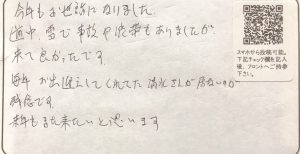 今年もお世話になりました。
道中、雪で事故や渋滞もありましたが
来て良かったです。
毎年お出迎えしてくれてた 清水さんが居ないのが
残念です。
来年もまた来たいと思います
スマホから投稿可能。
下記チェック欄を記入
後、フロントへご持参
下さい。